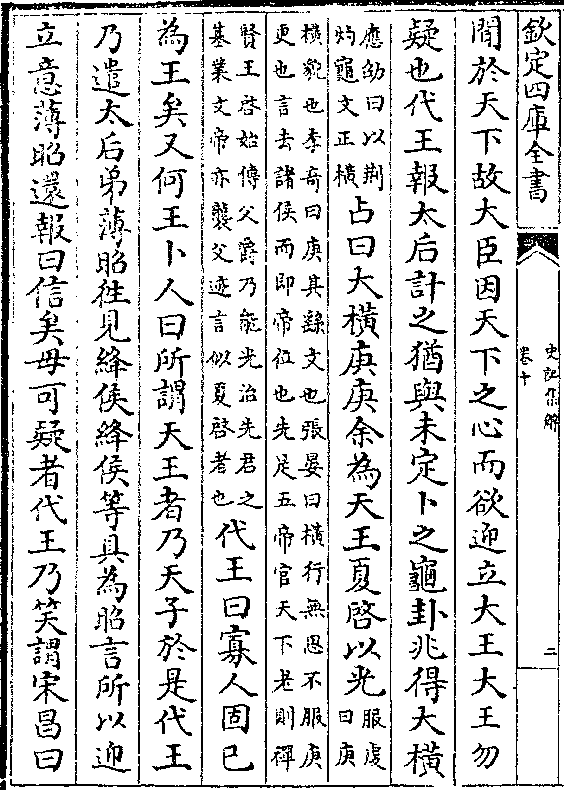 欽定四庫全書
史記集解
卷十
二
聞於天下故大臣因天下之心而欲迎立大王大王勿
疑也代王報太后計之猶與未定卜之龜卦兆得大橫
應劭曰以荆
灼龜文正橫
占曰大橫庚庚余為天王夏啓以光
服虔
曰庚
橫貌也李竒曰庚其繇文也張晏曰橫行無思不服庚
更也言去諸侯而即帝位也先是五帝官天下老則禪
賢王啓始傳父爵乃能光治先君之
基業文帝亦襲父迹言似夏啓者也
代王曰寡人固已
為王矣又何王卜人曰所謂天王者乃天子於是代王
乃遣太后弟薄昭往見絳侯絳侯等具為昭言所以迎
立意薄昭還報曰信矣毋可疑者代王乃笑謂宋昌曰